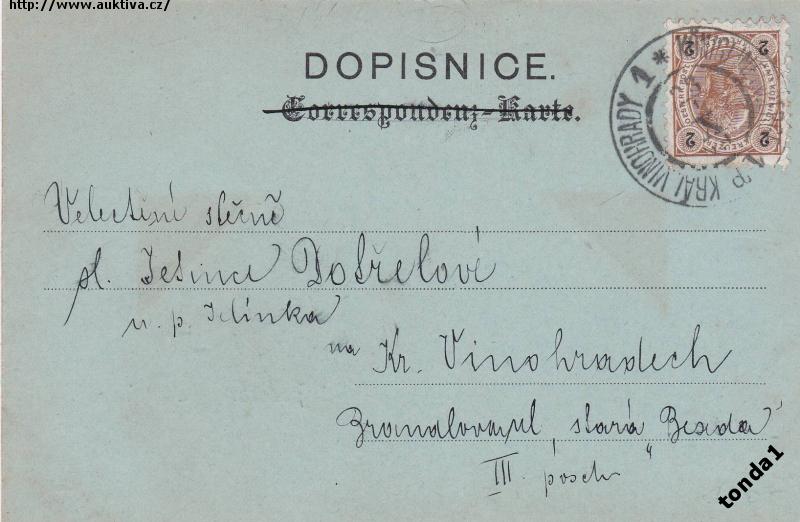 http://www.auktiva.cz/
DOPISNICE.
Correspondenz-Karte.
KRÁL VINOHRADY 1 *
2 2
2 2
Velectění slečně
sl. Dobřelové
u. p. Jelínka
na Kr. Vinohradech
"stará Besada"
III. posch
tonda1